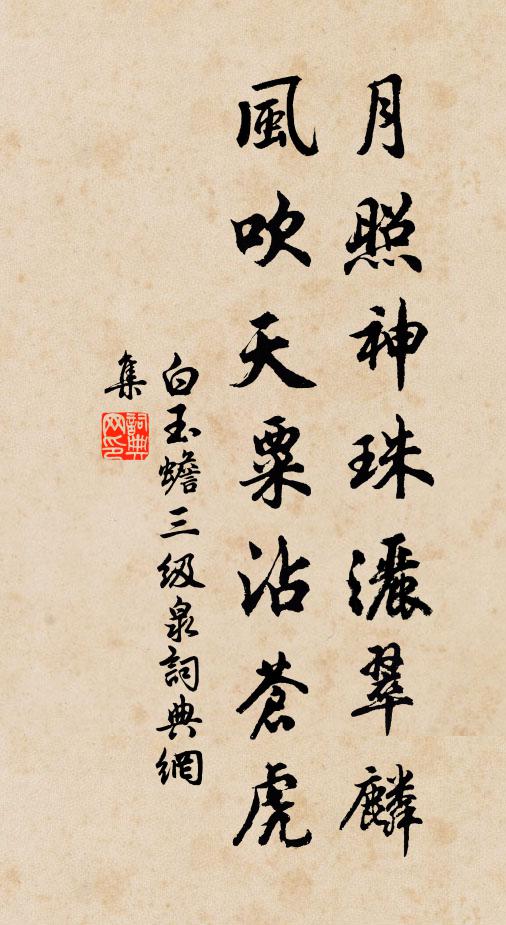 月照神珠灑翠麟
風吹天粟沾蒼虎
白玉蟾三級泉詞典網
集
詞典
网印